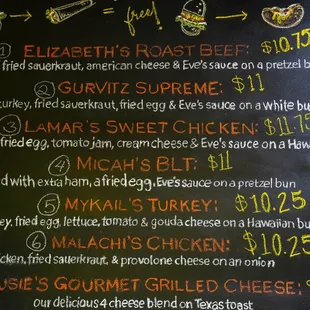 = free!
1 ELIZABETH'S ROAST BEEF: $10.75
fried sauerkraut, american cheese & Eve's sauce on a pretzel b
2 GURVITZ SUPREME: $11
turkey, fried sauerkraut, fried egg & Eve's sauce on a white bu
3 LAMAR'S SWEET CHICKEN: $11.75
fried egg, tomato jam, cream cheese & Eve's sauce on a Haw
4 MICAH'S BLT: $11
d with extra ham, a fried egg, Eve's sauce on a pretzel bun
5 MYKAIL'S TURKEY: $10.25
ey, fried egg, lettuce, tomato & gouda cheese on a Hawaiian bu
6 MALACHI'S CHICKEN: $10.25
cken, fried sauerkraut, & provolone cheese on an onion
USIE'S GOURMET GRILLED CHEESE:
our delicious 4 cheese blend on Texas toast